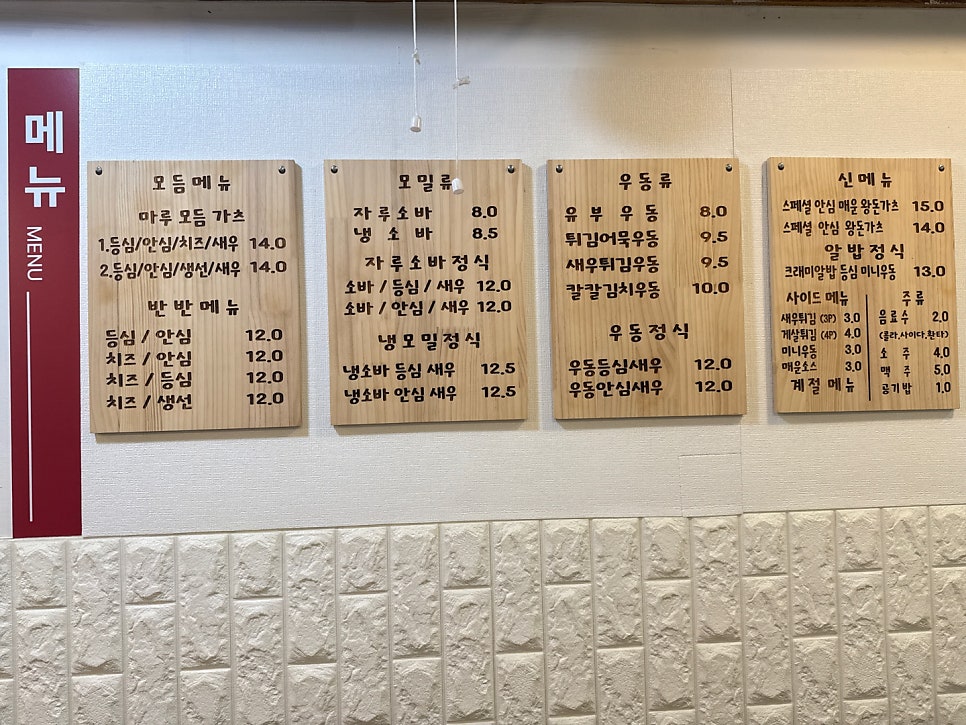 메뉴
MENU
모듬메뉴
마루 모듬 가츠
1.등심/안심/치즈/새우 14.0
2.등심/안심/생선/새우 14.0
반반메뉴
등심 / 안심 12.0
치즈 / 안심 12.0
치즈 / 등심 12.0
치즈 / 생선 12.0
모밀류
자루소바 8.0
냉 소 바 8.5
자루소바정식
소바 / 등심 / 새우 12.0
소바 / 안심 / 새우 12.0
냉모밀정식
냉소바 등심 새우 12.5
냉소바 안심 새우 12.5
우동류
유 부 우 동 8.0
튀김어묵우동 9.5
새우튀김우동 9.5
칼칼김치우동 10.0
우동정식
우동등심새우 12.0
우동안심새우 12.0
신메뉴
스페셜 안심 매운 왕돈가츠 15.0
스페셜 안심 왕돈가츠 14.0
알밥정식
크래미알밥 등심 미니우동 13.0
사이드 메뉴
새우튀김 (3P) 3.0
게살튀김 (4P) 4.0
미니우동 3.0
매운소스 3.0
계절 메뉴
주류
음료수 2.0
(콜라,사이다,환타)
소 주 4.0
맥 주 5.0
공기밥 1.0